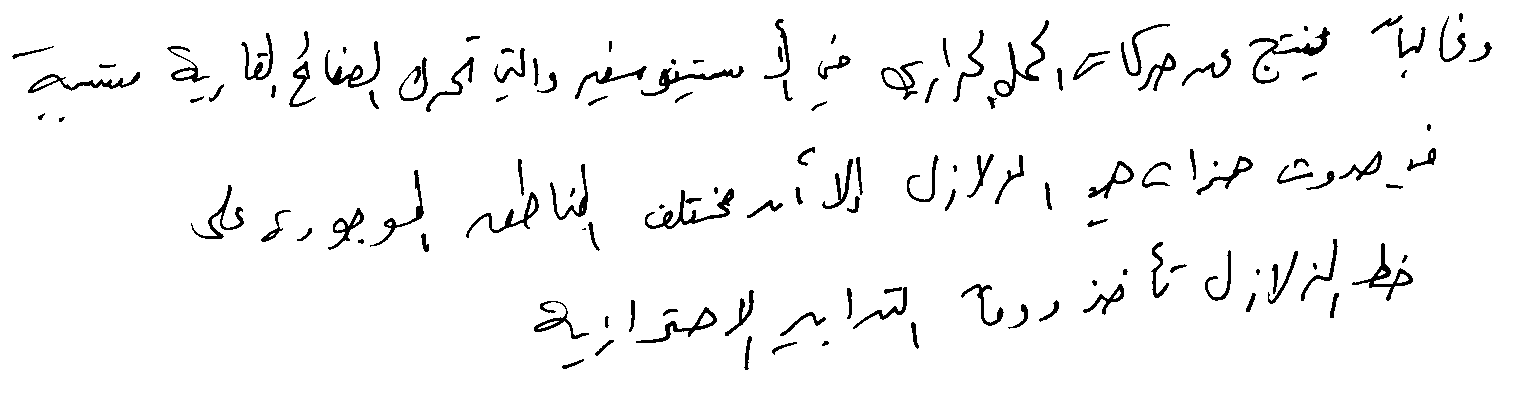 وغالباً ينتج عن حركات الحمل الحراري في الأستينوسفير والتي تحرك الصفائح القارية متسببةً
في حدوث هزات هي الزلازل إلا أن مختلف المناطق الموجودة على
خط الزلازل تأخذ دوماً التدابير الاحترازية